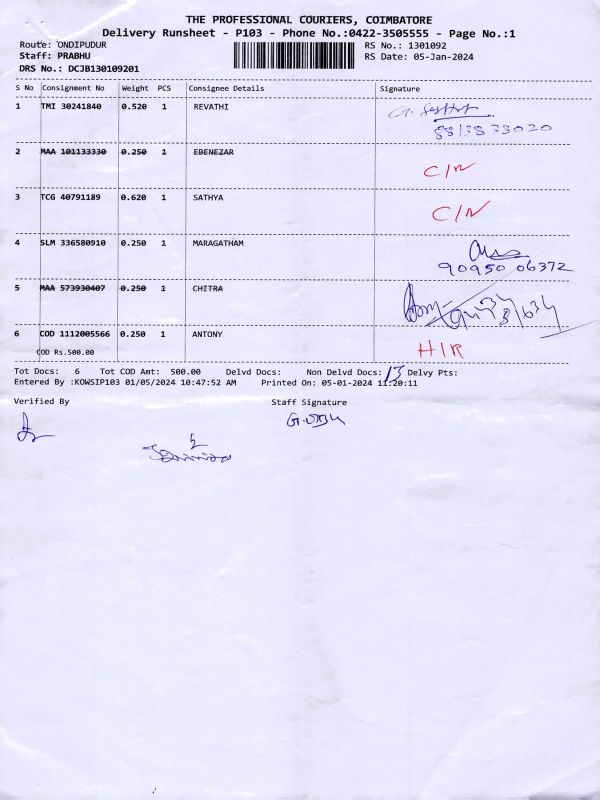 THE PROFESSIONAL COURIERS, COIMBATORE
Delivery Runsheet - P103 - Phone No.:0422-3505555 - Page No.:1
Route: ONDIPUDUR RS No.: 1301092
Staff: PRABHU RS Date: 05-Jan-2024
DRS No.: DCJB130109201
S No Consignment No Weight PCS Consignee Details Signature
1 TMI 30241840 0.520 1 REVATHI
2 MAA 101133330 0.250 1 EBENEZAR C/N
3 TCG 40791189 0.620 1 SATHYA C/N
4 SLM 336580910 0.250 1 MARAGATHAM
90950 06372
5 MAA 573930407 0.250 1 CHITRA
6 COD 1112005566 0.250 1 ANTONY H/R
COD Rs.500.00
Tot Docs: 6 Tot COD Amt: 500.00 Delvd Docs: Non Delvd Docs: 13 Delvy Pts:
Entered By :KOWSIP103 01/05/2024 10:47:52 AM Printed On: 05-01-2024 11:20:11
Verified By Staff Signature